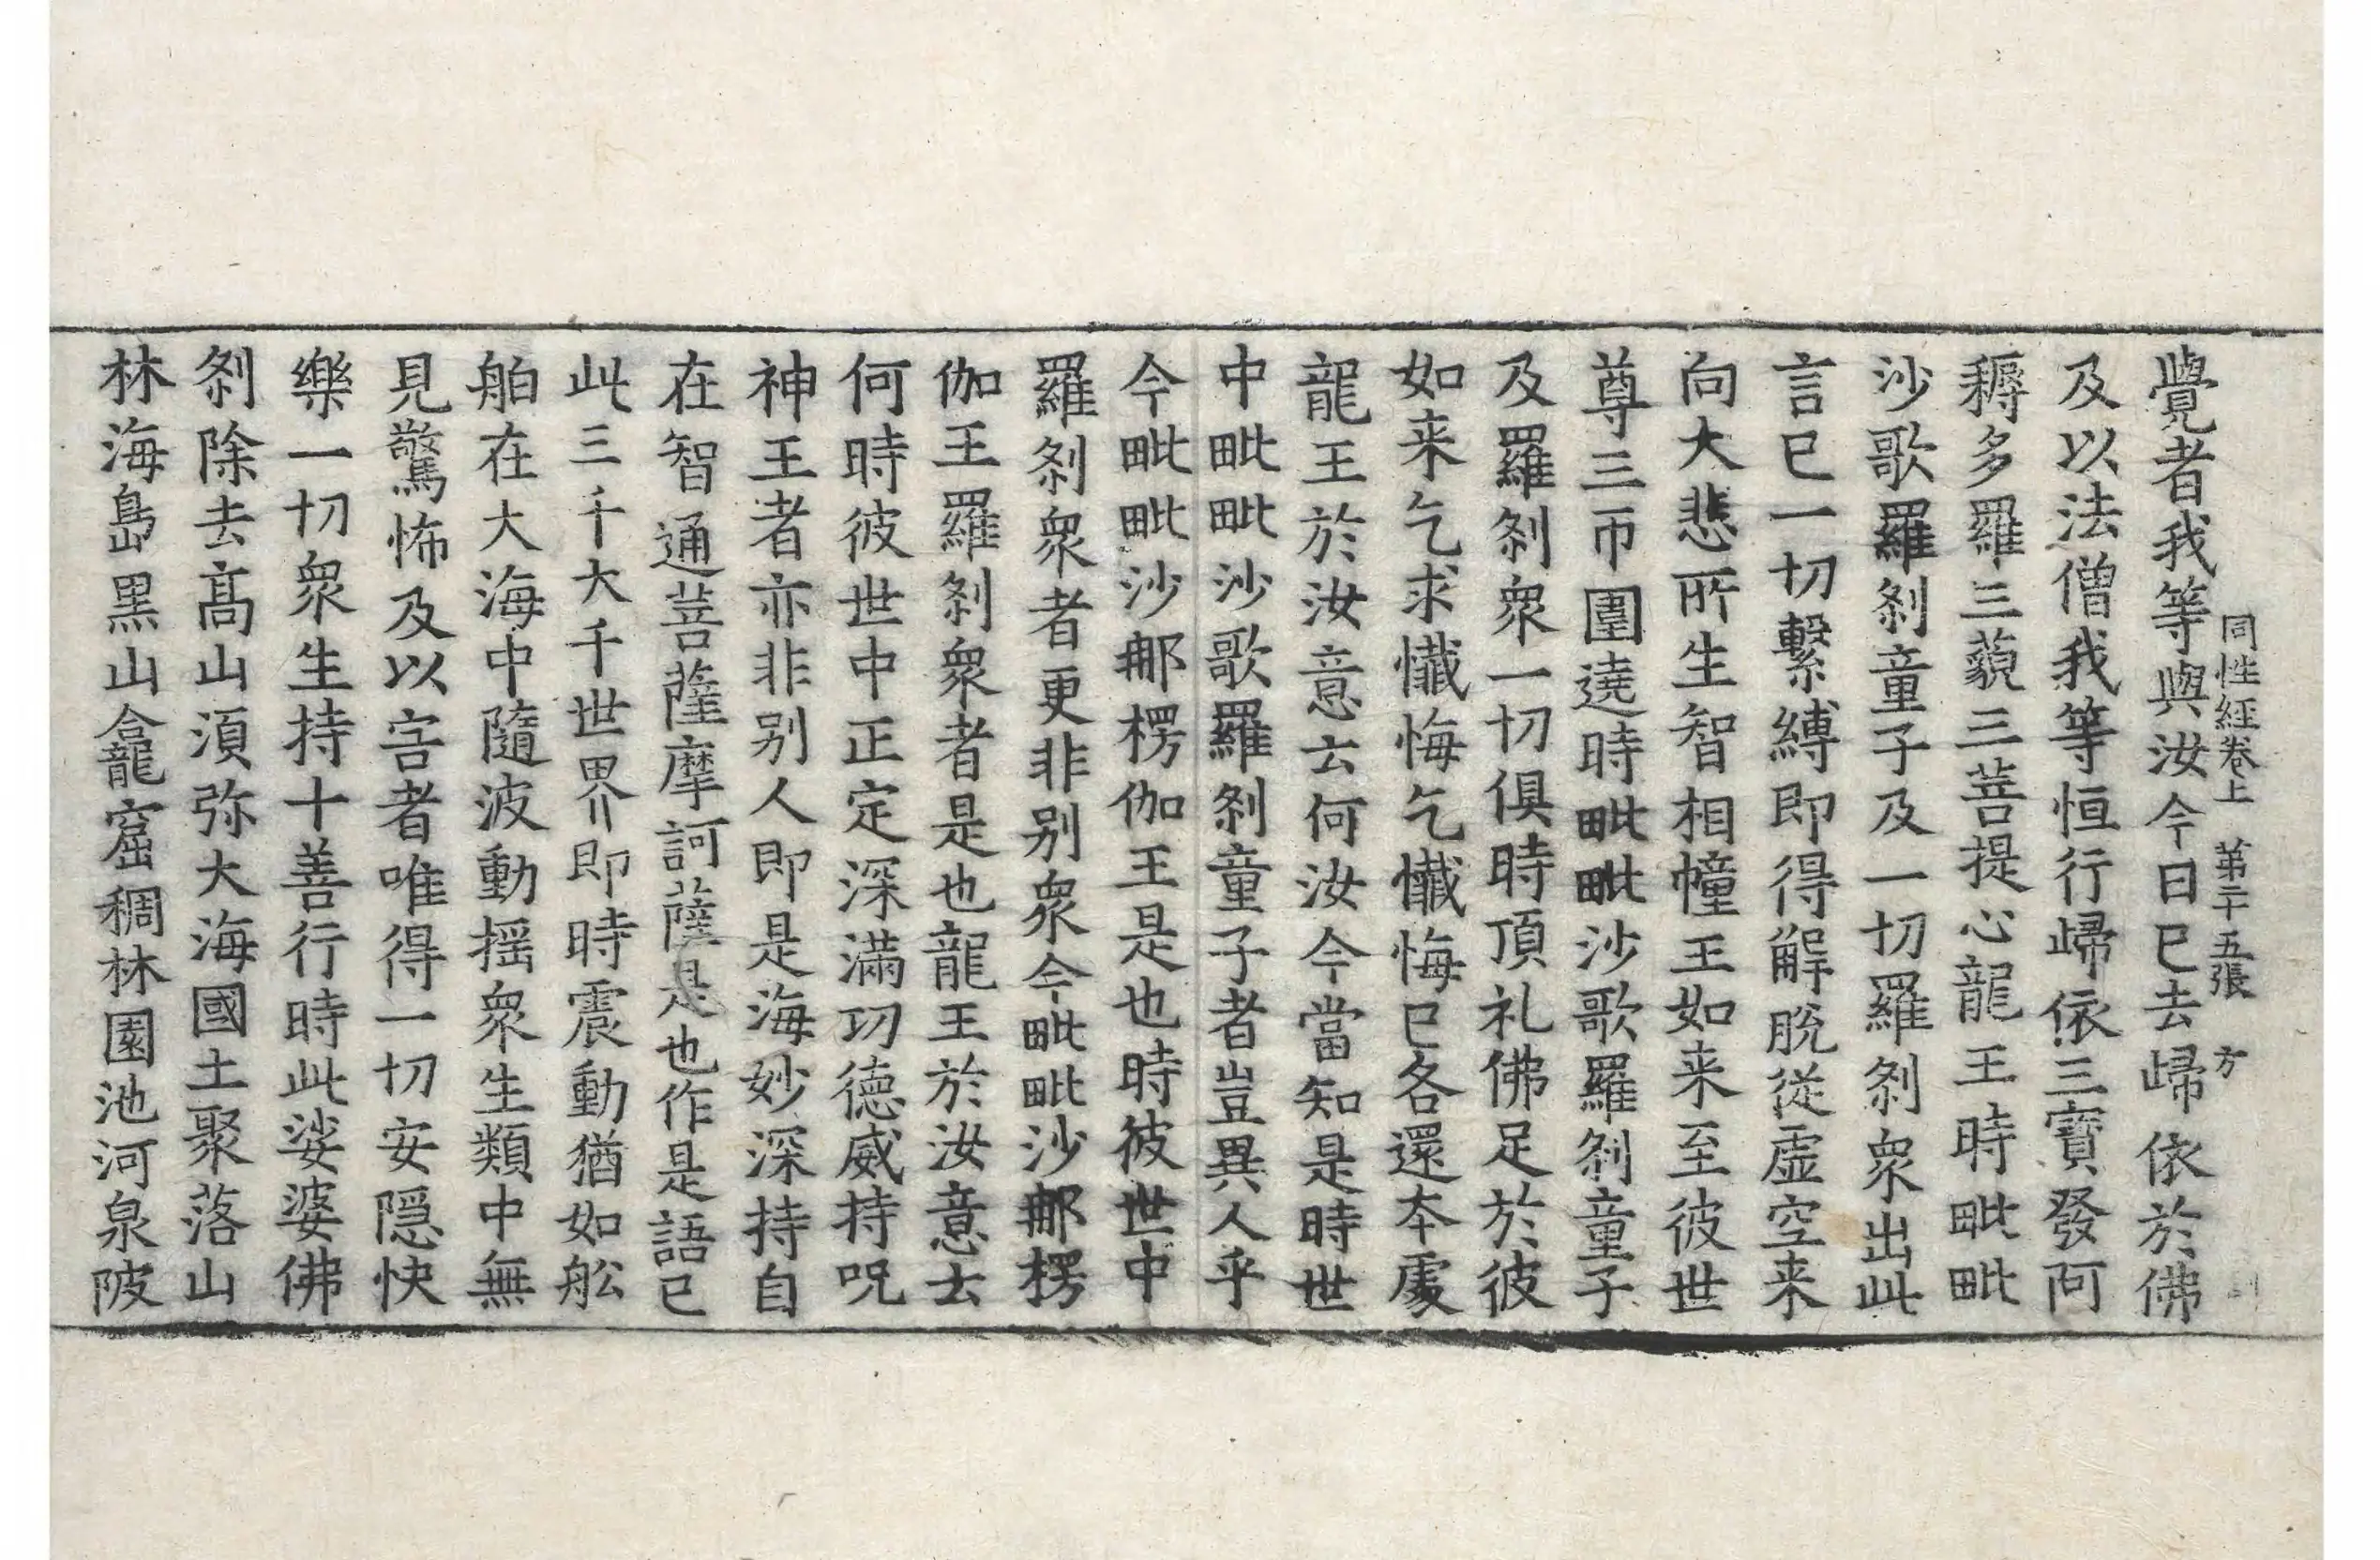 同性經卷上 第二十五張 方
覺者我等與汝今日已去歸依於佛
及以法僧我等恒行歸依三寶發阿
耨多羅三藐三菩提心龍王時毗毗
沙歌羅刹童子及一切羅刹衆出此
言已一切繫縛即得解脫從虛空来
向大悲所生智相幢王如来至彼世
尊三帀圍遶時毗毗沙歌羅刹童子
及羅刹衆一切俱時頂礼佛足於彼
如来乞求懺悔乞懺悔已各還本處
龍王於汝意云何汝今當知是時世
中毗毗沙歌羅刹童子者豈異人乎
今毗毗沙郍楞伽王是也時彼世中
羅刹衆者更非別衆今毗毗沙郍楞
伽王羅刹衆者是也龍王於汝意云
何時彼世中正定深滿功德威持呪
神王者亦非別人即是海妙深持自
在智通菩薩摩訶薩是也作是語已
此三千大千世界即時震動猶如舩
舶在大海中隨波動揺衆生類中無
見驚怖及以害者唯得一切安隱快
樂一切衆生持十善行時此娑婆佛
刹除去髙山湏弥大海國土聚落山
林海島黒山龕窟稠林園池河泉陂